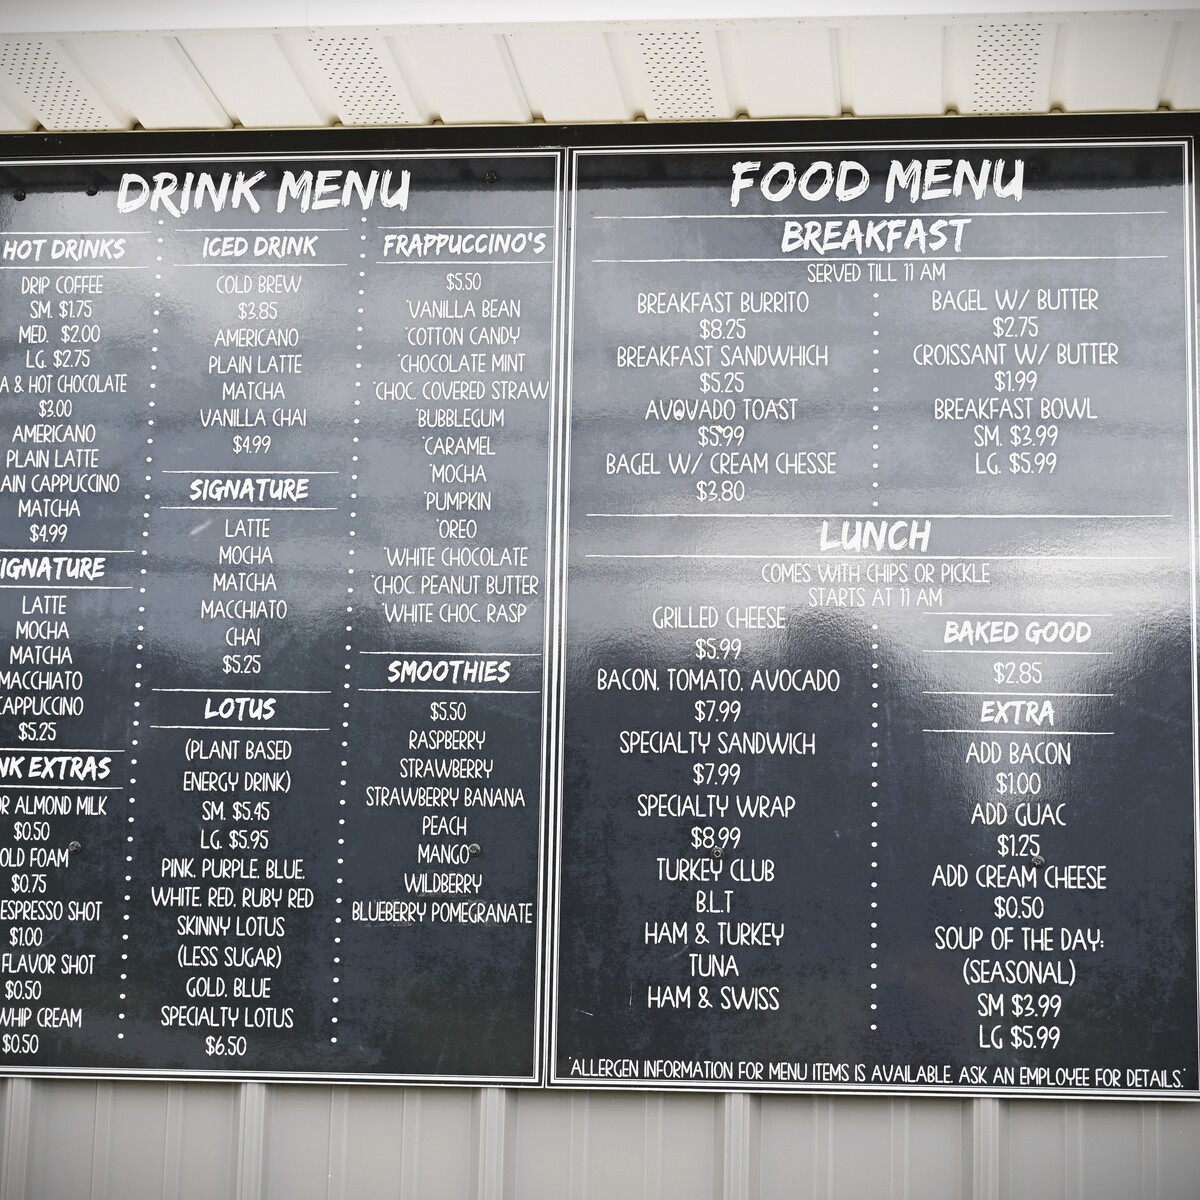 DRINK MENU
HOT DRINKS
DRIP COFFEE
SM. $1.75
MED. $2.00
LG. $2.75
& HOT CHOCOLATE
$3.00
AMERICANO
PLAIN LATTE
CAPPUCCINO
MATCHA
$4.99
LATTE
MOCHA
MATCHA
MACCHIATO
$5.25
EXTRAS
ALMOND MILK
$0.50
FOAM
$0.75
ESPRESSO SHOT
$1.00
FLAVOR SHOT
$0.50
WHIP CREAM
$0.50
ICED DRINK
COLD BREW
$3.85
AMERICANO
PLAIN LATTE
MATCHA
VANILLA CHAI
$4.99
SIGNATURE
LATTE
MOCHA
MATCHA
MACCHIATO
CHAI
$5.25
LOTUS
(PLANT BASED
ENERGY DRINK)
SM. $5.45
LG. $5.95
PINK, PURPLE, BLUE,
WHITE, RED, RUBY RED
SKINNY LOTUS
(LESS SUGAR)
GOLD, BLUE
SPECIALTY LOTUS
$6.50
FRAPPUCCINO'S
$5.50
*VANILLA BEAN
*COTTON CANDY
*CHOCOLATE MINT
*CHOC. COVERED STRAW
*BUBBLEGUM
*CARAMEL
*MOCHA
*PUMPKIN
*OREO
*WHITE CHOCOLATE
*CHOC. PEANUT BUTTER
*WHITE CHOC. RASP
SMOOTHIES
$5.50
RASPBERRY
STRAWBERRY
STRAWBERRY BANANA
PEACH
MANGO
WILDBERRY
BLUEBERRY POMEGRANATE
FOOD MENU
BREAKFAST
SERVED TILL 11 AM
BREAKFAST BURRITO
$8.25
BREAKFAST SANDWHICH
$5.25
AVOVADO TOAST
$5.99
BAGEL W/ CREAM CHESSE
$3.80
BAGEL W/ BUTTER
$2.75
CROISSANT W/ BUTTER
$1.99
BREAKFAST BOWL
SM. $3.99
LG. $5.99
LUNCH
COMES WITH CHIPS OR PICKLE
STARTS AT 11 AM
GRILLED CHEESE
$5.99
BACON, TOMATO, AVOCADO
$7.99
SPECIALTY SANDWICH
$7.99
SPECIALTY WRAP
$8.99
TURKEY CLUB
B.L.T
HAM & TURKEY
TUNA
HAM & SWISS
BAKED GOOD
$2.85
EXTRA
ADD BACON
$1.00
ADD GUAC
$1.25
ADD CREAM CHEESE
$0.50
SOUP OF THE DAY:
(SEASONAL)
SM $3.99
LG $5.99
*ALLERGEN INFORMATION FOR MENU ITEMS IS AVAILABLE. ASK AN EMPLOYEE FOR DETAILS.*